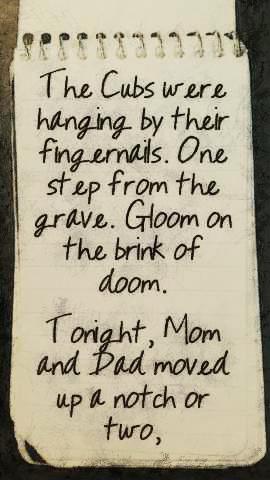 The Cubs were
hanging by their
fingernails. One
step from the
grave. Gloom on
the brink of
doom.
Tonight, Mom
and Dad moved
up a notch or
two,